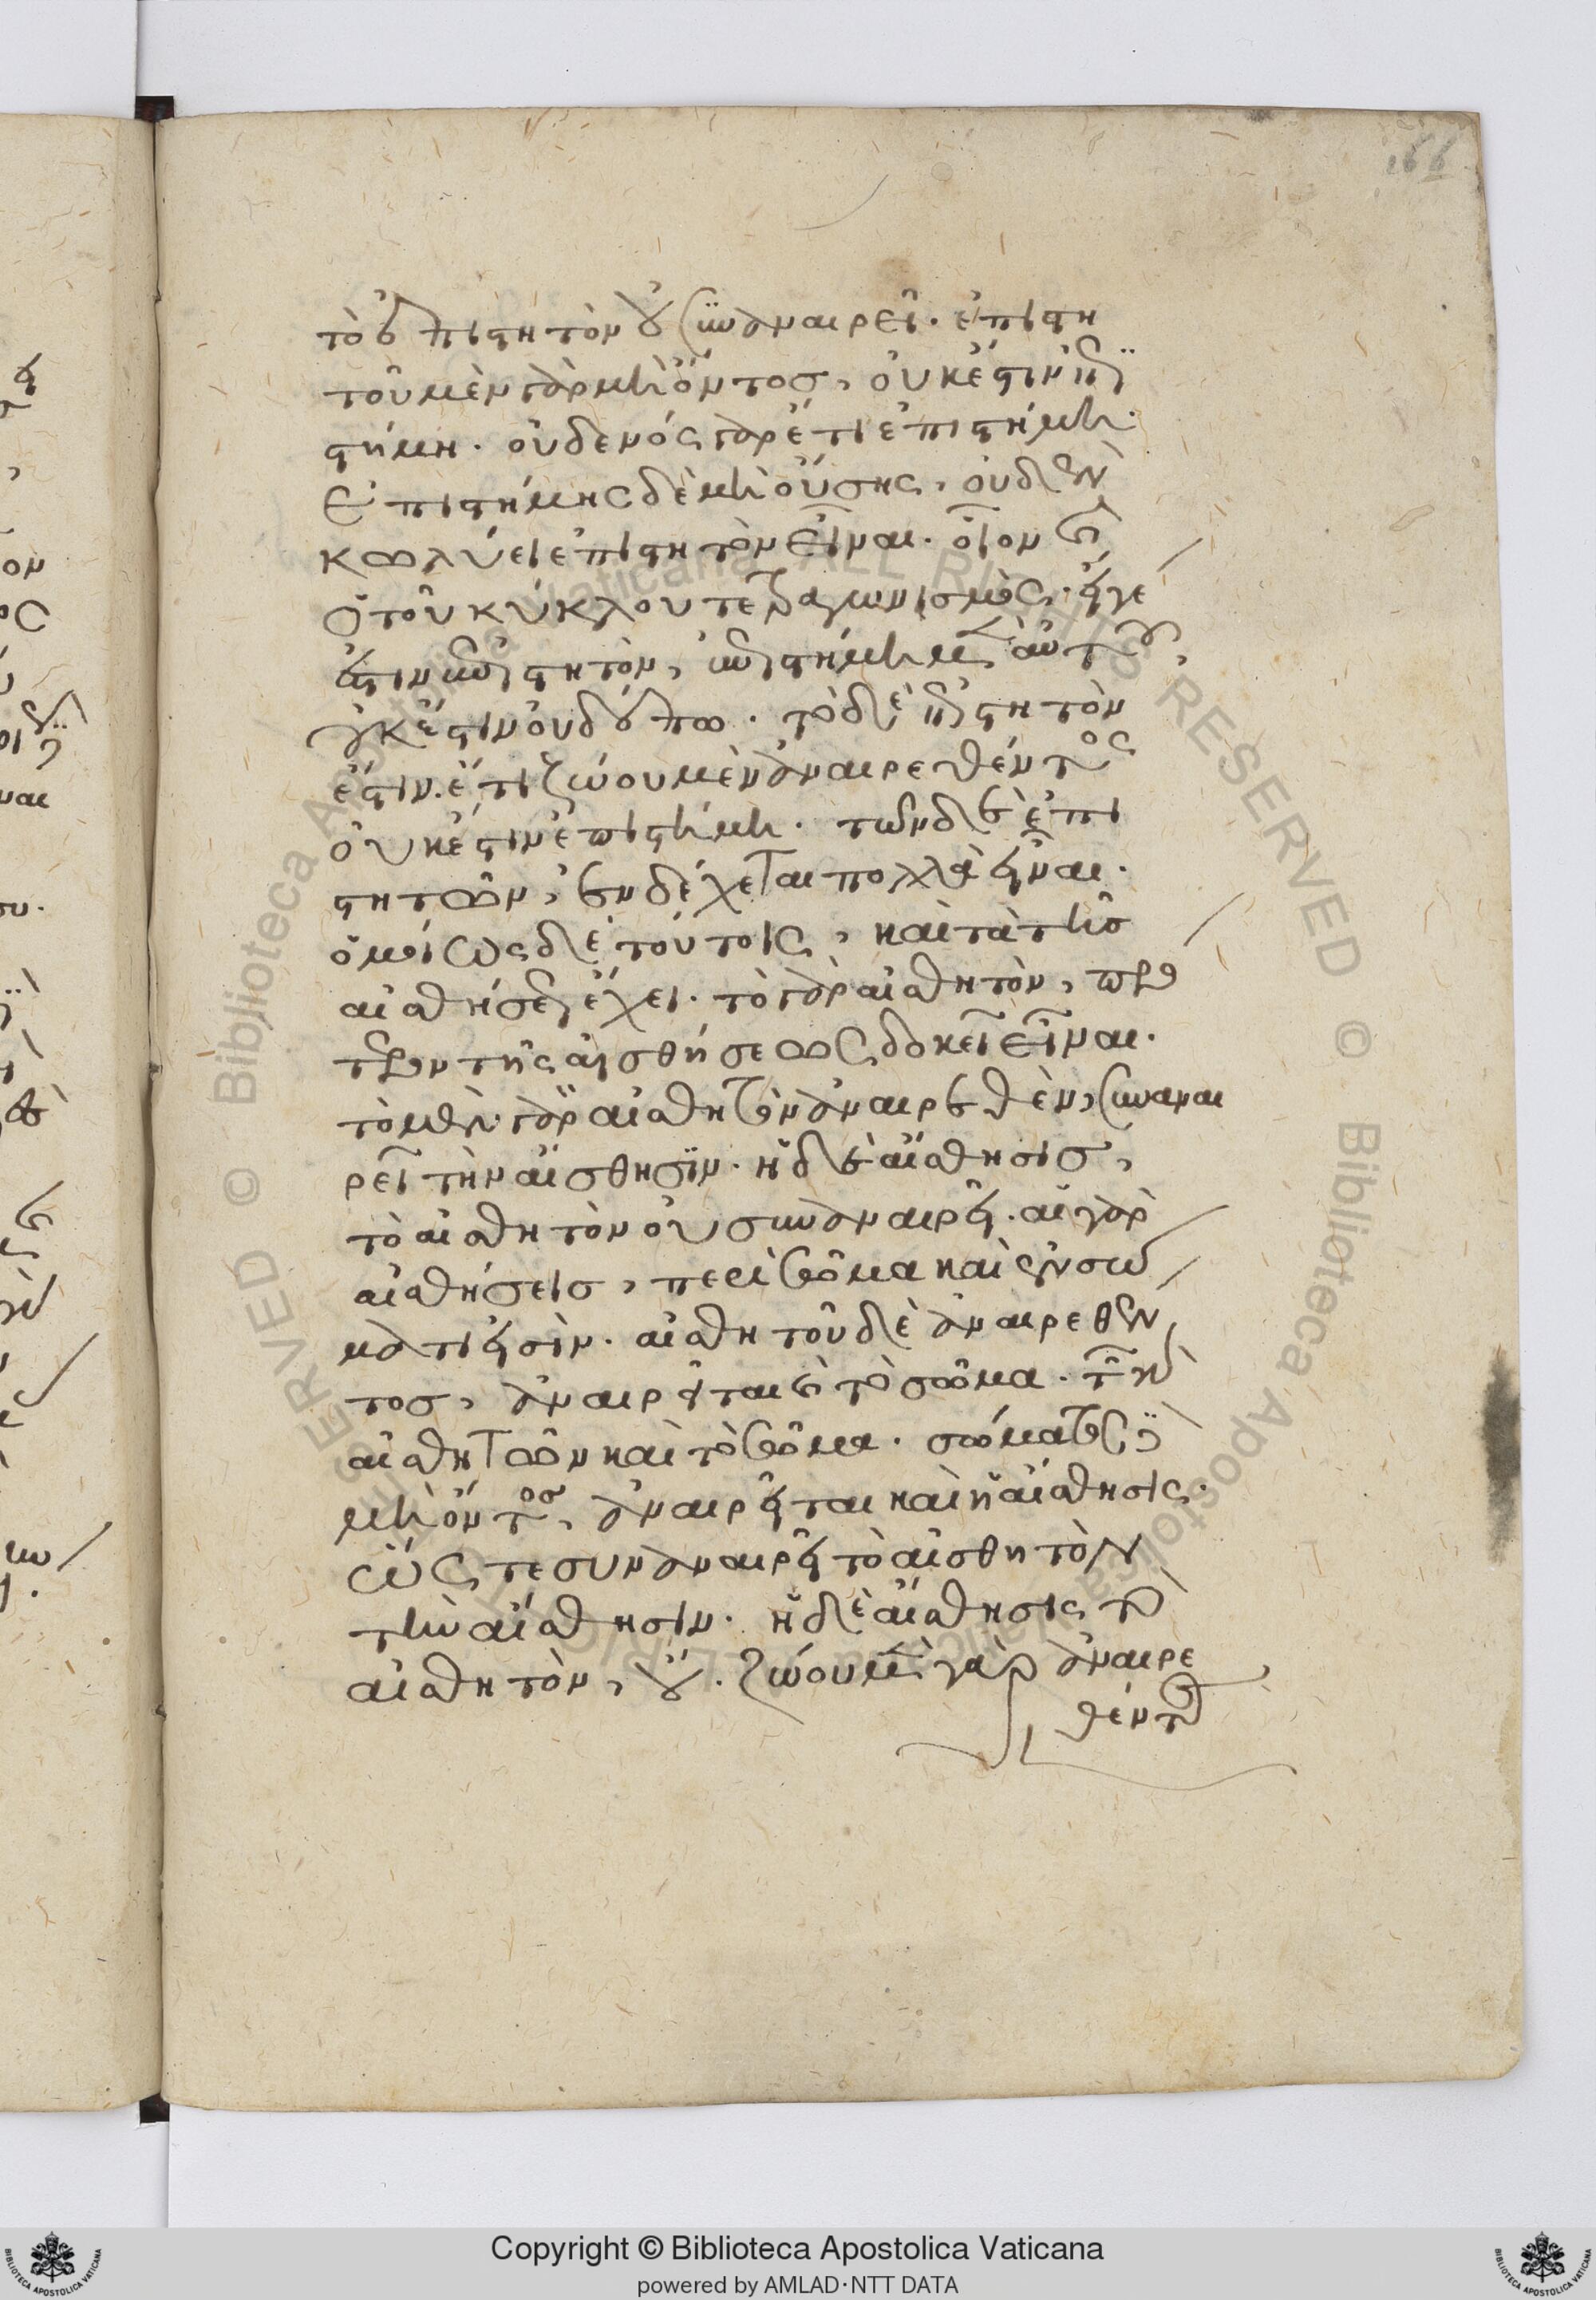 166
τὸ ἐπιστητὸν οὐ συναναιρεῖ. ἐπιστη
τοῦ μὲν γὰρ μὴ ὄντος, οὐκ ἔστιν ἐπι
στήμη. οὐδενὸς γὰρ ἔτι ἐπιστήμη.
ἐπιστήμης δὲ μὴ οὔσης, οὐδὲν
κωλύει ἐπιστητὸν εἶναι. οἷον καὶ
ὁ τοῦ κύκλου τετραγωνισμὸς. εἴγε
ἔστιν ἐπιστητὸν, ἐπιστήμη μὲν αὐτοῦ,
οὐκ ἔστιν οὐδέπω. τὸ δὲ ἐπιστητὸν
ἔστιν. ἔτι ζώου μὲν ἀναιρεθέντος
οὐκ ἔστιν ἐπιστήμη. τῶν δὲ ἐπι
στητῶν, ἐνδέχεται πολλὰ εἶναι.
ὁμοίως δὲ τούτοις, καὶ τὰ τῆς
αἰσθήσεως ἔχει. τὸ γὰρ αἰσθητὸν, πρό
τερον τῆς αἰσθήσεως δοκεῖ εἶναι.
τὸ μὲν γὰρ αἰσθητὸν ἀναιρεθὲν, συναναι
ρεῖ τὴν αἴσθησιν. ἡ δὲ αἴσθησις,
τὸ αἰσθητὸν οὐ συναναιρεῖ. αἱ γὰρ
αἰσθήσεις, περὶ σῶμα καὶ ἐν σώ
ματι εἰσὶν. αἰσθητοῦ δὲ ἀναιρεθέν
τος, ἀναιρεῖται καὶ τὸ σῶμα. τῶν γὰρ
αἰσθητῶν καὶ τὸ σῶμα. σώματος δὲ
μὴ ὄντος, ἀναιρεῖται καὶ ἡ αἴσθησις.
ὥστε συναναιρεῖ τὸ αἰσθητὸν
τὴν αἴσθησιν. ἡ δὲ αἴσθησις τὸ
αἰσθητὸν, οὔ. ζώου μὲν γὰρ ἀναιρε
θέντος
Copyright © Biblioteca Apostolica Vaticana
powered by AMLAD·NTT DATA